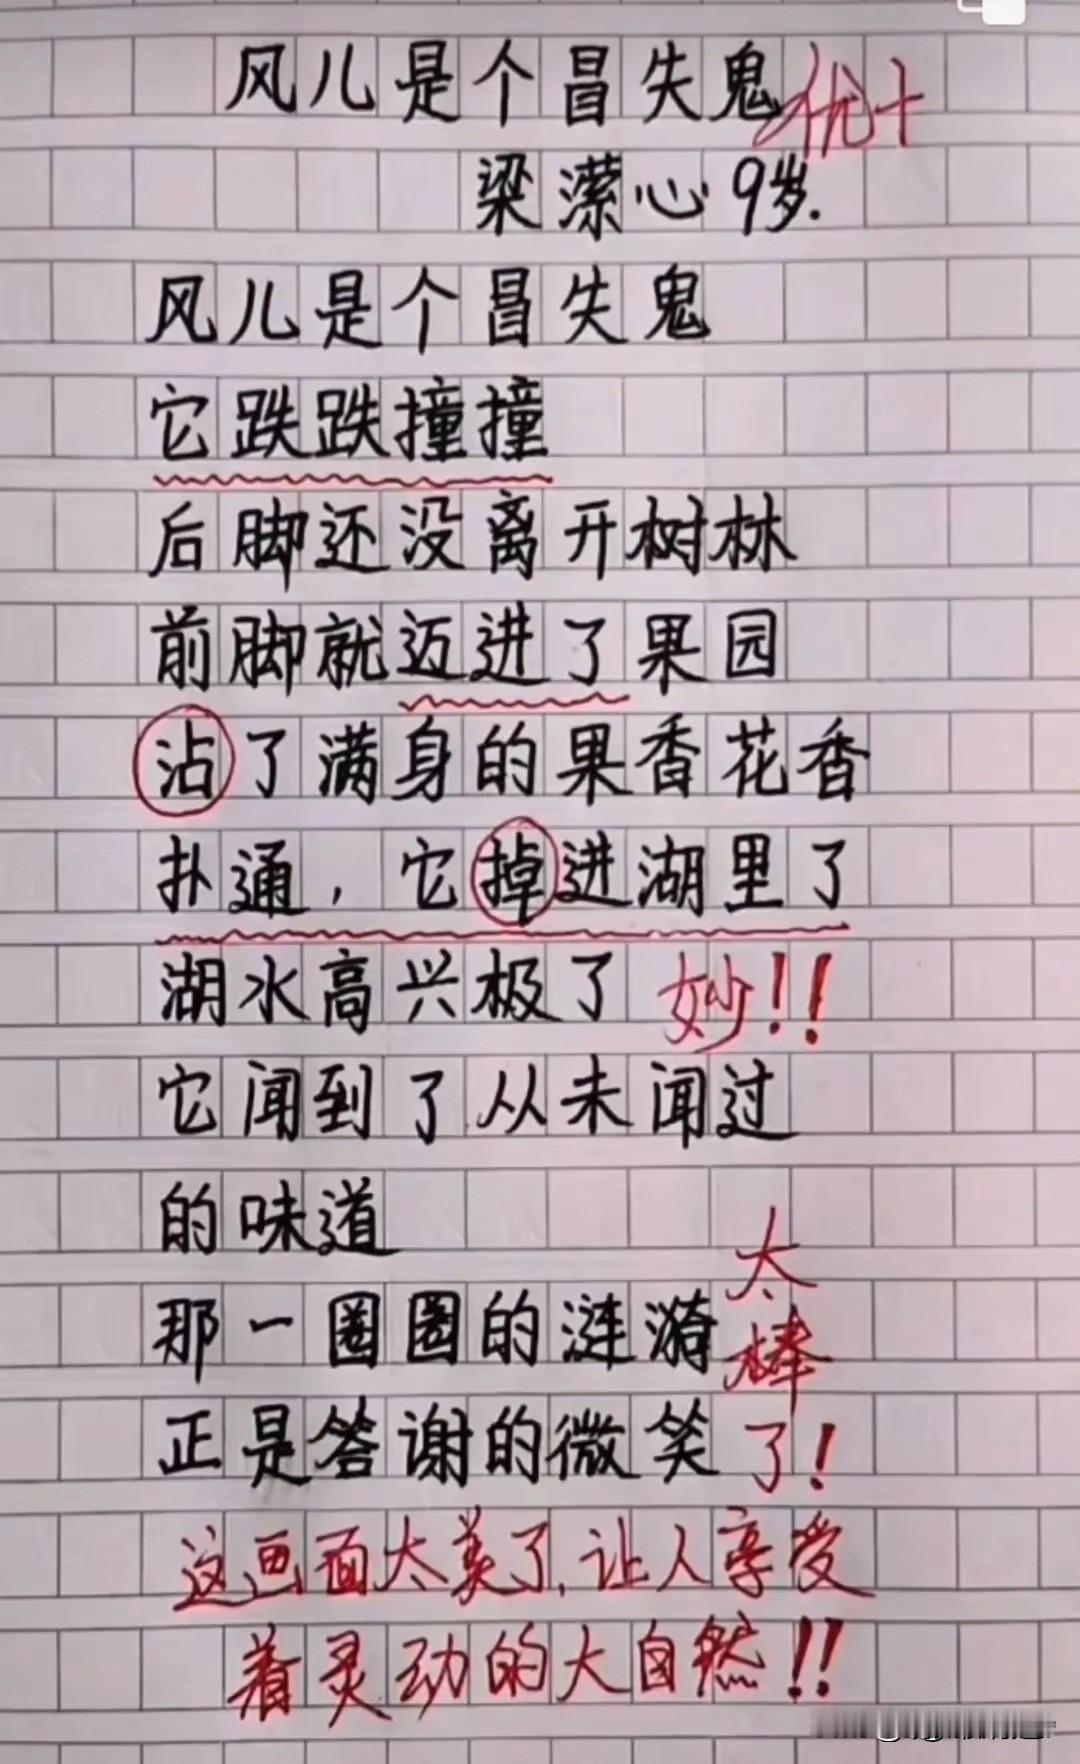 风儿是个冒失鬼 优+
梁潆心 9岁.
风儿是个冒失鬼
它跌跌撞撞
后脚还没离开树林
前脚就迈进了果园
沾了满身的果香花香
扑通，它掉进湖里了
湖水高兴极了 妙!!
它闻到了从未闻过
的味道
那一圈圈的涟漪
正是答谢的微笑
太棒了!
这画面太美了,让人享受
着灵动的大自然!!